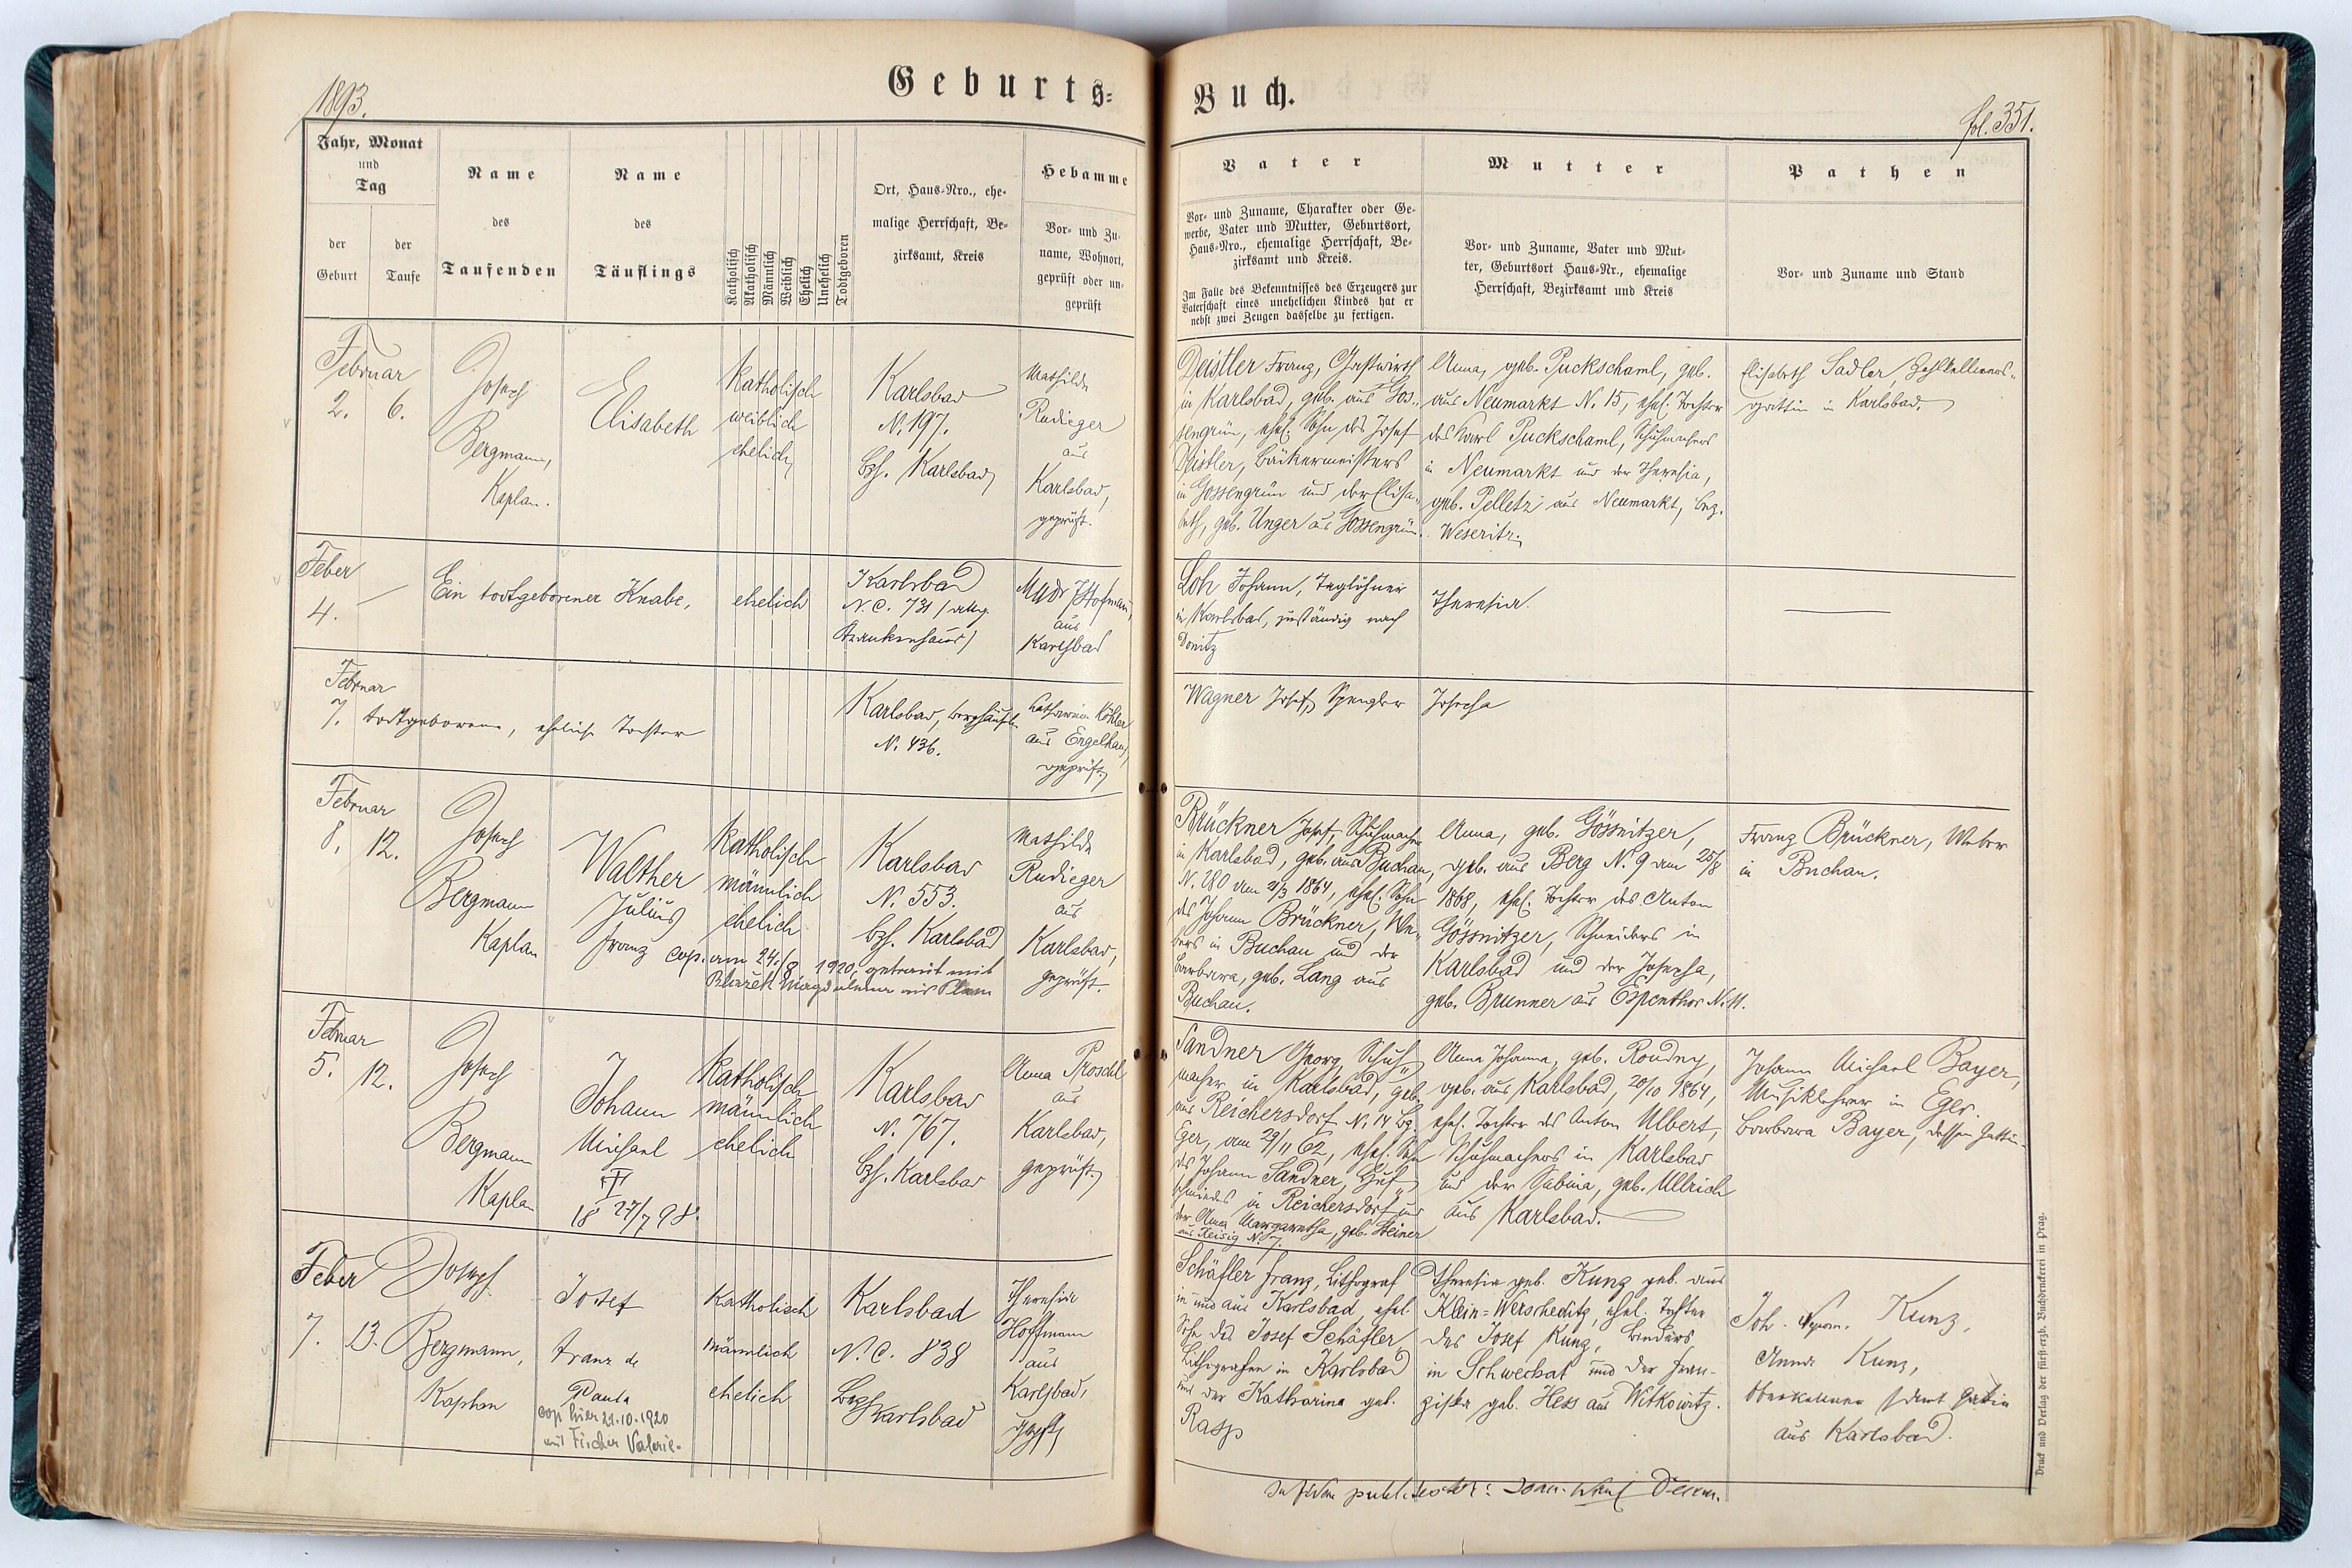 1893.
Geburts-
Buch.
fol. 351.
Jahr, Monat
und
Tag
der
Geburt
der
Taufe
Name
des
Taufenden
Name
des
Täuflings
Katholisch
Akatholisch
Männlich
Weiblich
Ehelich
Unehelich
Todtgeboren
Ort, Haus-Nro., ehe-
malige Herrschaft, Be-
zirksamt, Kreis
Hebamme
Vor- und Zu-
name, Wohnort,
geprüft oder un-
geprüft
Vater
Vor- und Zuname, Charakter oder Ge-
werbe, Vater und Mutter, Geburtsort,
Haus-Nro., ehemalige Herrschaft, Be-
zirksamt und Kreis.
Im Falle des Bekenntnisses des Erzeugers zur
Vaterschaft eines unehelichen Kindes hat er
nebst zwei Zeugen dasselbe zu fertigen.
Mutter
Vor- und Zuname, Vater und Mut-
ter, Geburtsort Haus-Nr., ehemalige
Herrschaft, Bezirksamt und Kreis
Pathen
Vor- und Zuname und Stand
Februar
2. 6.
Josef
Bergmann,
Kaplan.
Elisabeth
Katholisch
weiblich
ehelich
Karlsbad
N. 197.
bzh. Karlsbad
Mathilde
Rudieger
aus
Karlsbad,
geprüft.
Deistler Franz, Gastwirth
in Karlsbad, geb. aus Gos-
sengrün, ehel. Sohn des Josef
Deistler, Bäckermeisters
in Gossengrün und der Elisa-
beth, geb. Unger aus Gossengrün.
Anna, geb. Puckschaml, geb.
aus Neumarkt N. 15, ehel. Tochter
des Karl Puckschaml, Schuhmachers
in Neumarkt und der Theresia,
geb. Pelletz aus Neumarkt, bez.
Weseritz.
Elisabeth Sadler, Zahlkellners-
gattin in Karlsbad.
Feber
4. —
Ein todtgeborener Knabe,
ehelich
Karlsbad
N.C. 731 / allg.
Krankenhaus /
MUDr Hofmann,
aus
Karlsbad
Loh Johann, Taglöhner
in Karlsbad, zuständig nach
Donitz
Theresia.
Februar
7. todtgeborene, eheliche Tochter
Karlsbad,
N. 436.
Katharina Köhler
aus Engelhaus,
geprüft.
Wagner Josef, Spengler
Josefa
Februar
8. 12.
Josef
Bergmann
Kaplan
Walther
Julius
Franz
Katholisch
männlich
ehelich
cop. am 24./8 1920, getraut mit
Blažek aus Plan
Karlsbad
N. 553.
bzh. Karlsbad
Mathilde
Rudieger
aus
Karlsbad,
geprüft.
Brückner Josef, Schuhmacher
in Karlsbad, geb. aus Buchau,
N. 280 am 21/3 1864, ehel. Sohn
des Johann Brückner, We-
bers in Buchau und der
Barbara, geb. Lang aus
Buchau.
Anna, geb. Gössnitzer,
geb. aus Berg N. 9 am 25/8
1868, ehel. Tochter des Anton
Gössnitzer, Schneiders in
Karlsbad und der Josefa,
geb. Brunner aus Espenthor N. 11.
Franz Brückner, Weber
in Buchau.
Februar
5. 12.
Josef
Bergmann
Kaplan
Johann
Michael
18 27/7 98.
Katholisch
männlich
ehelich
Karlsbad
N. 767.
bzh. Karlsbad
Anna Proschl
aus
Karlsbad,
geprüft.
Sandner Georg, Schuh-
macher in Karlsbad, geb.
aus Reichersdorf N. 14 bz.
Eger, am 29/11 62, ehel. Sohn
des Johann Sandner, Huf-
schmiedes in Reichersdorf und
der Anna Margaretha, geb. Steiner
aus Reisig N. 7.
Anna Johanna, geb. Roudny,
geb. aus Karlsbad, 20/10 1864,
ehel. Tochter des Anton Ulbert,
Schuhmachers in Karlsbad
und der Sabina, geb. Ullrich
aus Karlsbad.
Johann Michael Bayer,
Musiklehrer in Eger.
Barbara Bayer, dessen Gattin.
Feber
7. 13.
Josef
Bergmann,
Kaplan
Josef
Franz de
Paula
cop. hier 21.10.1920
mit Fischer Valerie.
Katholisch
männlich
ehelich
Karlsbad
N.C. 838
Bzh Karlsbad
Theresia
Hoffmann
aus
Karlsbad,
Schäfler Franz, Lithograf
in und aus Karlsbad, ehel.
Sohn des Josef Schäfler,
Lithografen in Karlsbad
und der Katharina geb.
Rasp
Theresia geb. Kunz geb. aus
Klein-Werscheditz, ehel. Tochter
des Josef Kunz, Binders
in Schwechat und der Fran-
ziska geb. Hess aus Witkowitz.
Joh. Nepom. Kunz,
Anna Kunz,
Oberkellner samt Gattin
aus Karlsbad.
Druck und Verlag der fürst-erzb. Buchdruckerei in Prag.